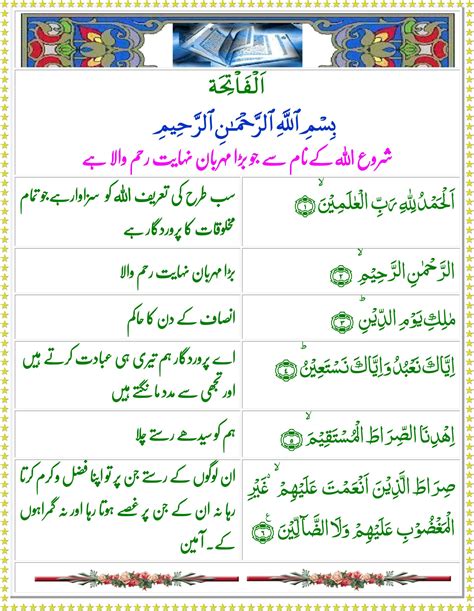 اَلْفَاتِحَة
بِسْمِ ٱللَّهِ ٱلرَّحْمَٰنِ ٱلرَّحِيمِ
شروع اللہ کے نام سے جو بڑا مہربان نہایت رحم والا ہے
اَلْحَمْدُ لِلّٰهِ رَبِّ الْعٰلَمِيْنَ ۙ﴿۱﴾
سب طرح کی تعریف اللہ کو سزاوار ہے جو تمام
مخلوقات کا پروردگار ہے
الرَّحْمٰنِ الرَّحِيْمِ ۙ﴿۲﴾
بڑا مہربان نہایت رحم والا
مٰلِكِ يَوْمِ الدِّيْنِ ؕ﴿۳﴾
انصاف کے دن کا حاکم
اِيَّاكَ نَعْبُدُ وَاِيَّاكَ نَسْتَعِيْنُ ؕ﴿۴﴾
اے پروردگار ہم تیری ہی عبادت کرتے ہیں
اور تجھی سے مدد مانگتے ہیں
اِهْدِنَا الصِّرَاطَ الْمُسْتَقِيْمَ ۙ﴿۵﴾
ہم کو سیدھے رستے چلا
صِرَاطَ الَّذِيْنَ اَنْعَمْتَ عَلَيْهِمْ ۙ غَيْرِ
الْمَغْضُوْبِ عَلَيْهِمْ وَلَا الضَّآلِّيْنَ ﴿۶﴾
ان لوگوں کے رستے جن پر تو اپنا فضل و کرم کرتا
رہا نہ ان کے جن پر غصے ہوتا رہا اور نہ گمراہوں
کے۔ آمین